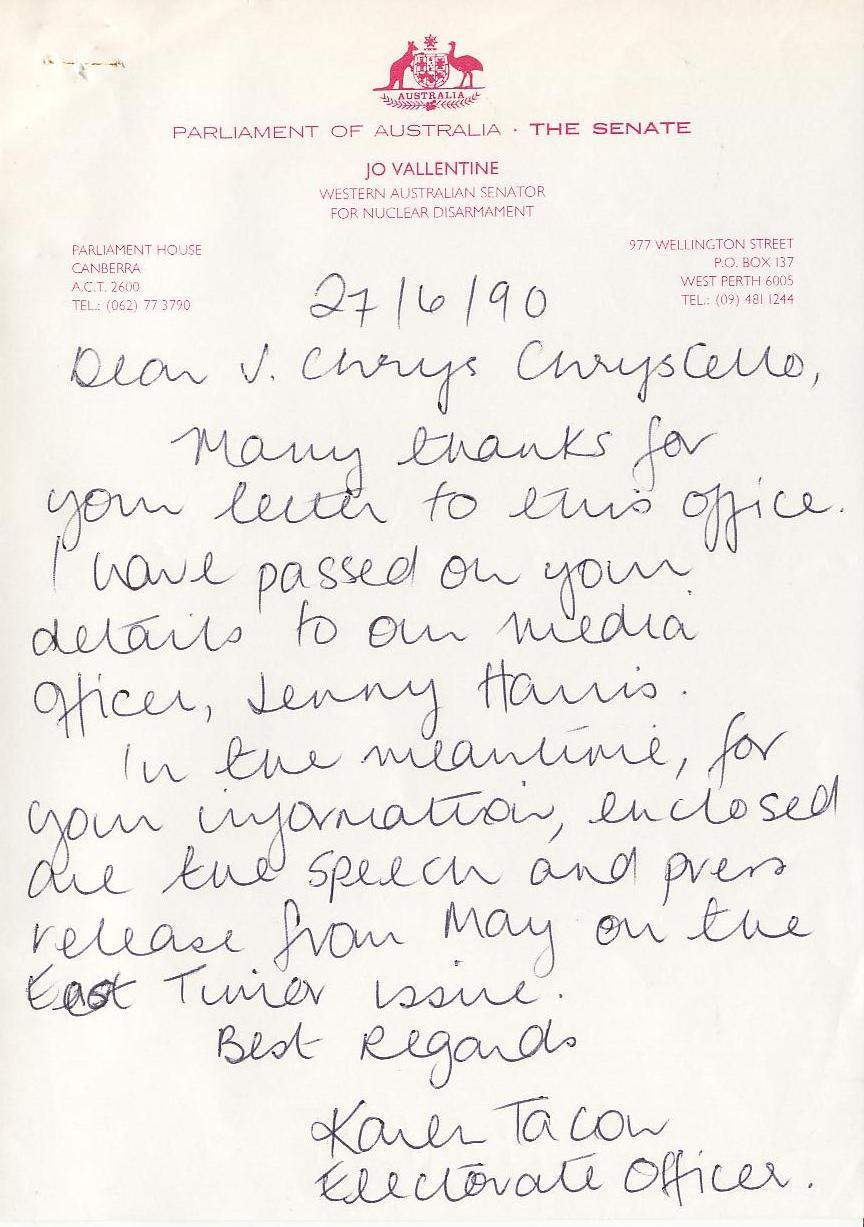 AUSTRALIA
PARLIAMENT OF AUSTRALIA · THE SENATE
JO VALLENTINE
WESTERN AUSTRALIAN SENATOR
FOR NUCLEAR DISARMAMENT
PARLIAMENT HOUSE
CANBERRA
A.C.T. 2600
TEL.: (062) 77 3790
977 WELLINGTON STREET
P.O. BOX 137
WEST PERTH 6005
TEL.: (09) 481 1244
27/6/90
Dear J. Chrys Chrystello,
Many thanks for
your letter to this office.
I have passed on your
details to our media
officer, Jenny Harris.
In the meantime, for
your information, enclosed
are the speech and press
release from May on the
East Timor issue.
Best Regards
Karen Tacon
Electorate Officer.